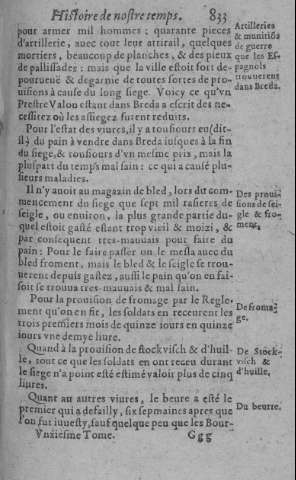 Histoire de nostre temps. 833
pour armer mil hommes : quarante pieces
d'artillerie, auec tout leur attirail, quelques
mortiers, beaucoup de planches, & des pieux
de pallissades : mais que la ville estoit fort de-
pourueuë & degarnie de toutes sortes de pro-
uisions à cause du long siege. Voicy ce qu'vn
Prestre Valou estant dans Breda a escrit des ne-
cessitez où les assiegez furent reduits.
Artilleries
& munitiõs
de guerre
que les Es-
pagnols
trouuerent
dans Breda.
Pour l'estat des viures, il y a tousiours eu (dit-
il) du pain à vendre dans Breda iusques à la fin
du siege, & tousiours d'vn mesme prix, mais la
pluspart du temps mal sain : ce qui a causé plu-
sieurs maladies.
Il n'y auoit au magazin de bled, lors du com-
mencement du siege que sept mil rasieres de
seigle, ou enuiron, la plus grande partie du-
quel estoit gasté estant trop vieil & moizi, & 
par consequent tres-mauuais pour faire du
pain : Pour le faire passer on le mesla auec du
bled froment, mais le bled & le seigle se trou-
uerent depuis gastez, aussi le pain qu'on en fai-
soit se trouua tres-mauuais & mal sain.
Des proui-
sions de sei-
gle & fro-
ment,
Pour la prouision de fromage par le Regle-
ment qu'on en fit, les soldats en receurent les
trois premiers mois de quinze iours en quinze
iours vne demye liure.
De froma-
ge.
Quand à la prouision de stockvisch & d'huil-
le, tout ce que les soldats en ont receu durant
le siege n'a point esté estimé valoir plus de cinq
liures.
De Stock-
visch &
d'huille,
Quant au autres viures, le beure a esté le
premier qui a defailly, six sepmaines apres que
l'on fut inuesty, sauf quelque peu que les Bour-
Du beurre.
Vnziesme Tome. Ggg